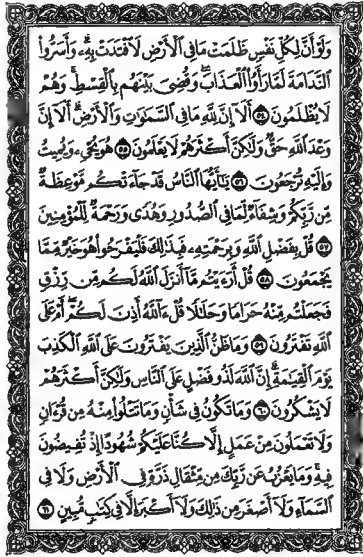 وَلَوْ أَنَّ لِكُلِّ نَفْسٍ ظَلَمَتْ مَا فِى ٱلْأَرْضِ لَٱفْتَدَتْ بِهِۦ وَأَسَرُّوا۟
ٱلنَّدَامَةَ لَمَّا رَأَوُا۟ ٱلْعَذَابَ وَقُضِىَ بَيْنَهُم بِٱلْقِسْطِ وَهُمْ
لَا يُظْلَمُونَ ٥٤ أَلَآ إِنَّ لِلَّهِ مَا فِى ٱلسَّمَٰوَٰتِ وَٱلْأَرْضِ أَلَآ إِنَّ
وَعْدَ ٱللَّهِ حَقٌّ وَلَٰكِنَّ أَكْثَرَهُمْ لَا يَعْلَمُونَ ٥٥ هُوَ يُحْىِۦ وَيُمِيتُ
وَإِلَيْهِ تُرْجَعُونَ ٥٦ يَٰٓأَيُّهَا ٱلنَّاسُ قَدْ جَآءَتْكُم مَّوْعِظَةٌ
مِّن رَّبِّكُمْ وَشِفَآءٌ لِّمَا فِى ٱلصُّدُورِ وَهُدًى وَرَحْمَةٌ لِّلْمُؤْمِنِينَ
٥٧ قُلْ بِفَضْلِ ٱللَّهِ وَبِرَحْمَتِهِۦ فَبِذَٰلِكَ فَلْيَفْرَحُوا۟ هُوَ خَيْرٌ مِّمَّا
يَجْمَعُونَ ٥٨ قُلْ أَرَءَيْتُم مَّآ أَنزَلَ ٱللَّهُ لَكُم مِّن رِّزْقٍ
فَجَعَلْتُم مِّنْهُ حَرَامًا وَحَلَٰلًا قُلْ ءَآللَّهُ أَذِنَ لَكُمْ أَمْ عَلَى
ٱللَّهِ تَفْتَرُونَ ٥٩ وَمَا ظَنُّ ٱلَّذِينَ يَفْتَرُونَ عَلَى ٱللَّهِ ٱلْكَذِبَ
يَوْمَ ٱلْقِيَٰمَةِ إِنَّ ٱللَّهَ لَذُو فَضْلٍ عَلَى ٱلنَّاسِ وَلَٰكِنَّ أَكْثَرَهُمْ
لَا يَشْكُرُونَ ٦٠ وَمَا تَكُونُ فِى شَأْنٍ وَمَا تَتْلُوا۟ مِنْهُ مِن قُرْءَانٍ
وَلَا تَعْمَلُونَ مِنْ عَمَلٍ إِلَّا كُنَّا عَلَيْكُمْ شُهُودًا إِذْ تُفِيضُونَ
فِيهِ وَمَا يَعْزُبُ عَن رَّبِّكَ مِن مِّثْقَالِ ذَرَّةٍ فِى ٱلْأَرْضِ وَلَا فِى
ٱلسَّمَآءِ وَلَآ أَصْغَرَ مِن ذَٰلِكَ وَلَآ أَكْبَرَ إِلَّا فِى كِتَٰبٍ مُّبِينٍ ٦١